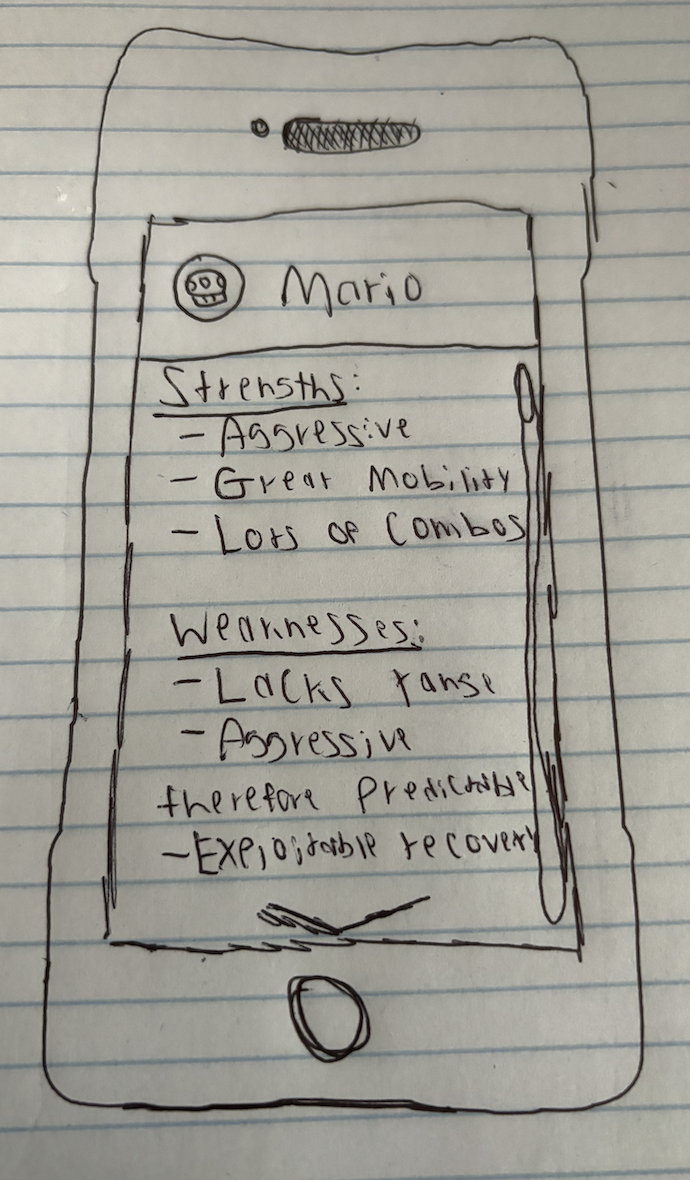 Mario
Strengths:
- Aggressive
- Great Mobility
- Lots of Combos
Weaknesses:
- Lacks range
- Aggressive
therefore Predictable
- Exploitable recovery